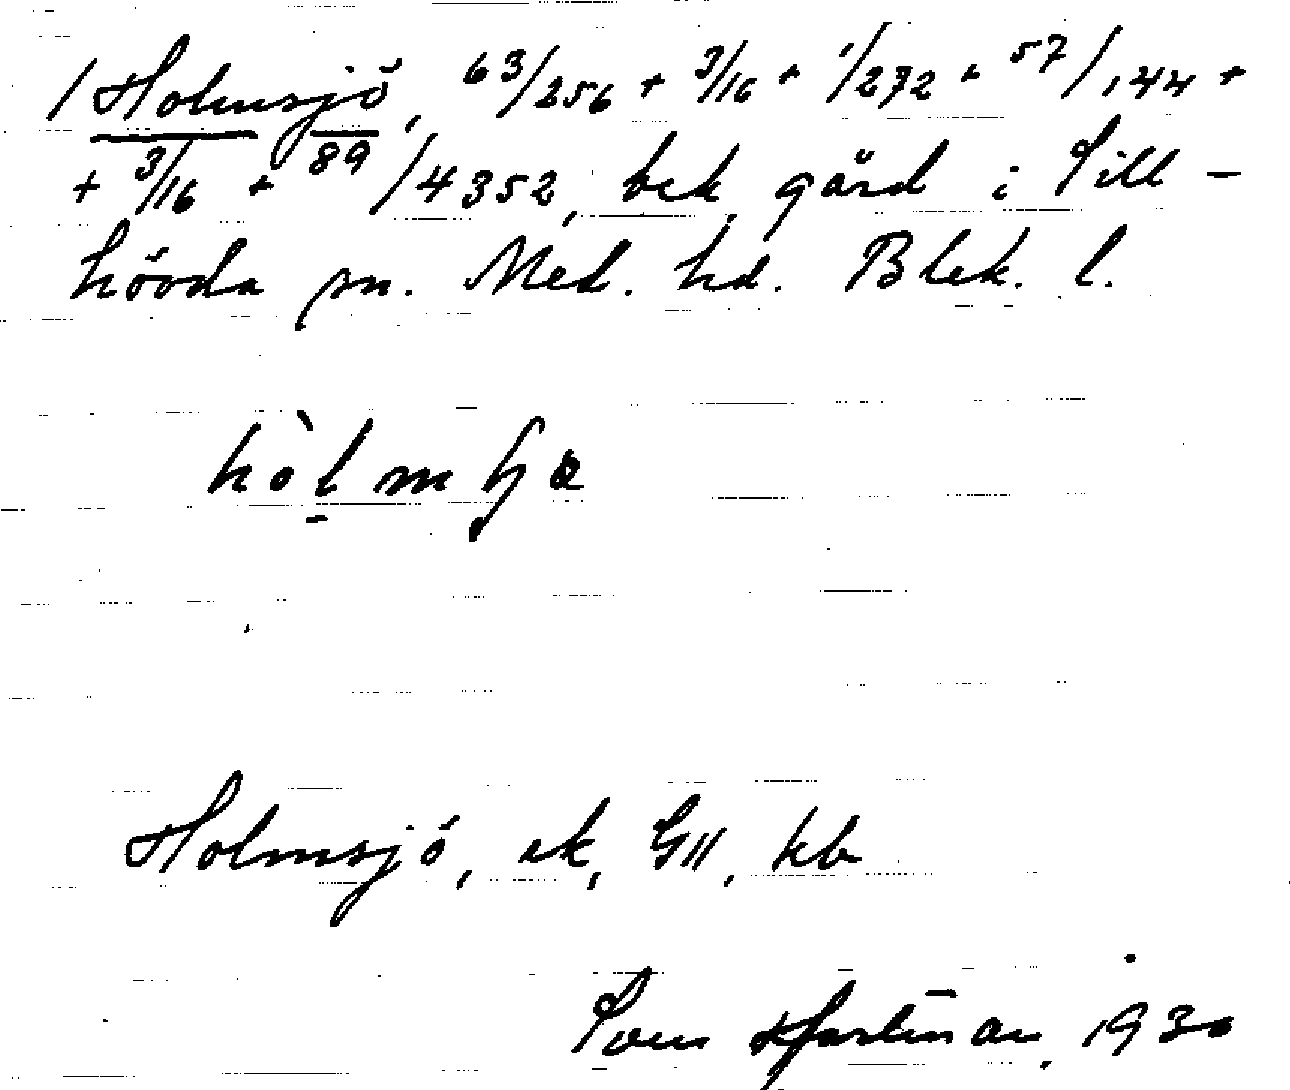 / Holmsjö, 63/256 + 3/16 + 1/272 + 57/144 +
+ 3/16 + 89/4352, bek. gård i Sill-
hövda sn. Med. hd. Blek. l.
Holmsjö, ek, GII, kb
Sven 1930